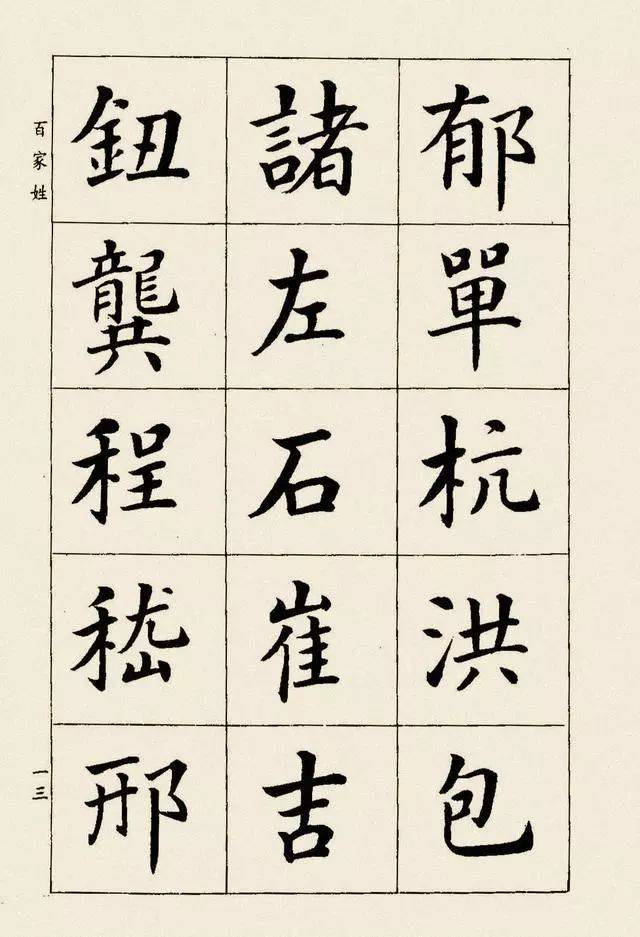 郁單杭洪包
諸左石崔吉
鈕龔程嵇邢
百家姓
一三